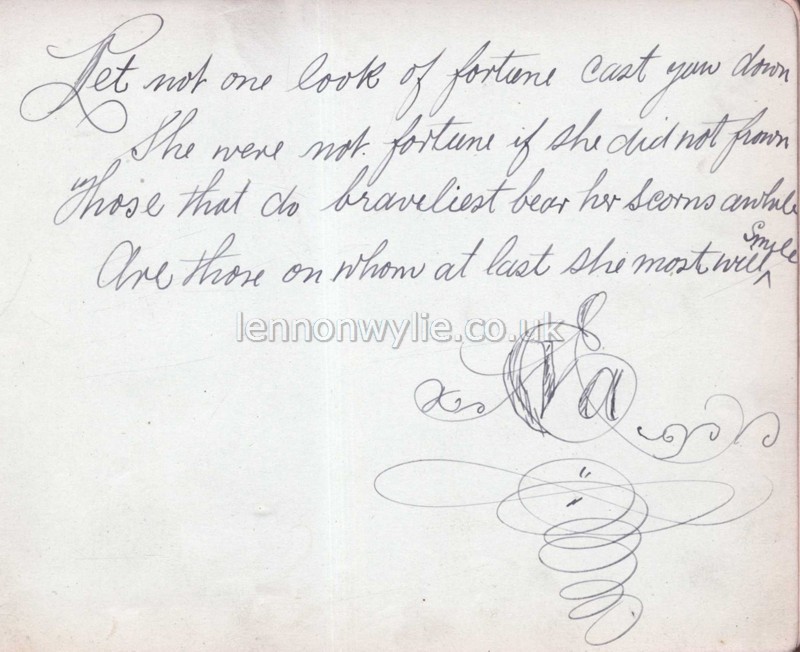 Let not one look of fortune cast you down
She were not fortune if she did not frown
Those that do braveliest bear her scorns awhile
Are those on whom at last she most will ^ Smile
lennonwylie.co.uk